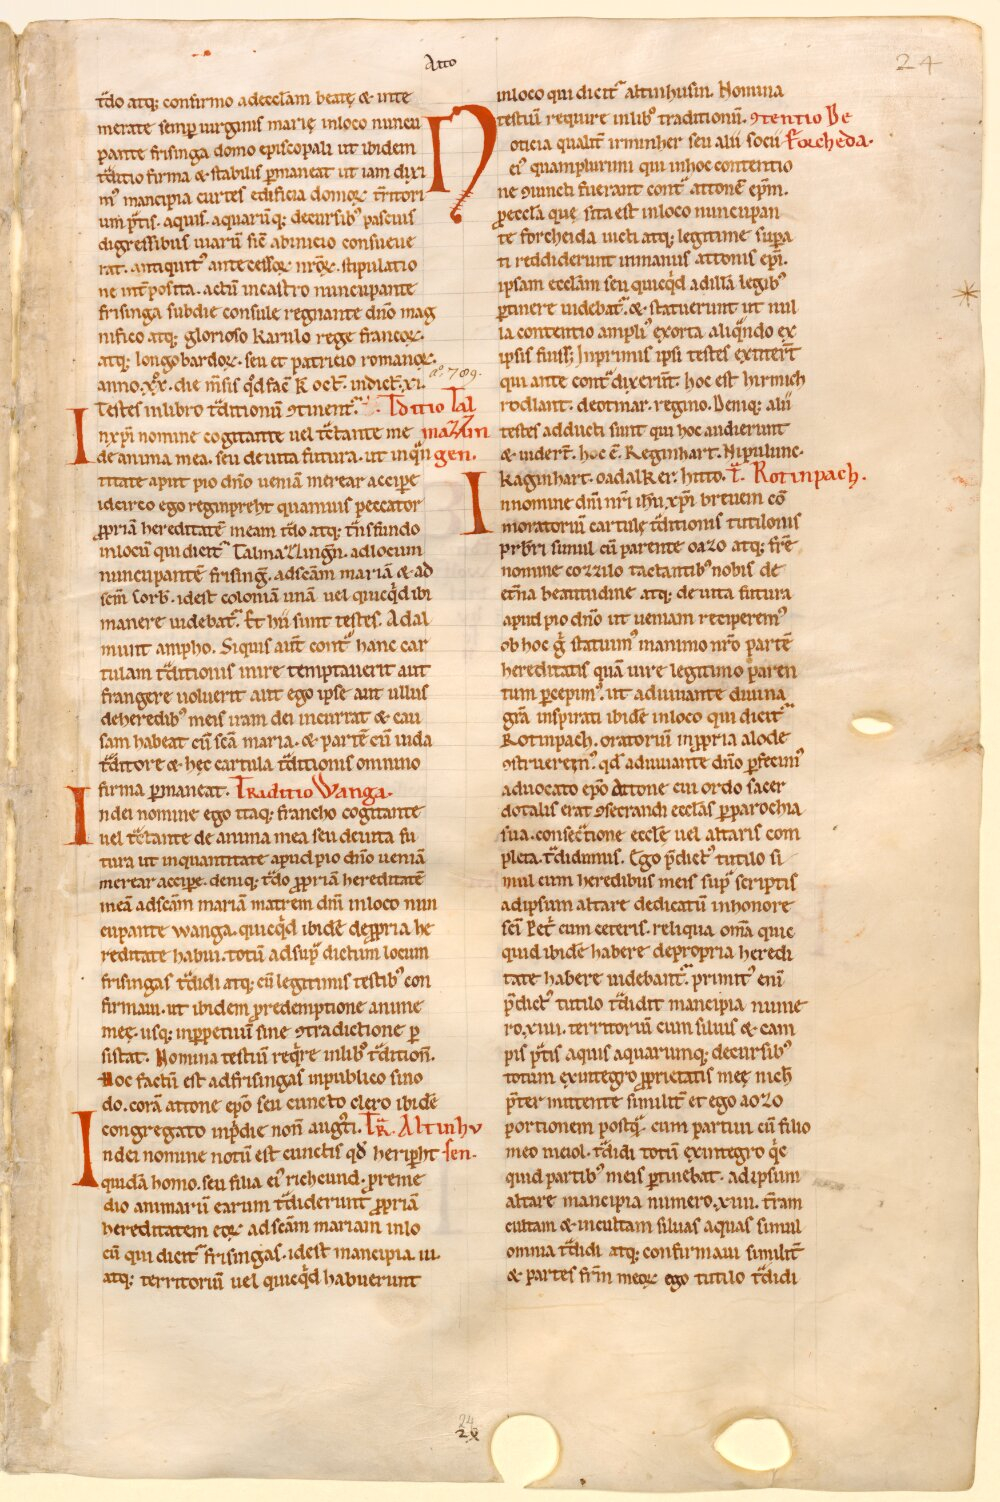 Atto
24
t̄do atq; confirmo adeccl̄am beatę & inte
merate semp̄ uirginis marię inloco nuncu
pante frisinga domo episcopali ut ibidem
t̄ditio firma & stabilis p̄maneat ut iam dixi
m᾽ mancipia curtes edificia domoꝝ t̄ritori
um p̄tis. aquis. aquarūq; decursib᾽ pascuis
digressibus uiarū sic̄ abinicio consueue
rat. antiquit᾽ antecessoꝝ nr̄oꝝ. stipulatio
ne int̄posita. actū incastro nuncupante
frisinga subdie consule regnante dn̄o mag
nifico atq; glorioso karulo rege francoꝝ.
atq; longobardoꝝ. seu et patricio romanoꝝ.
anno. xx. die m̄sis qd̄ fac̄ K oct̄. indict̄. xi.
aº. 789.
Testes inlibro t̄ditionū ꝯtinent᷑. T̄ditio Tal
mazzin
gen.
Inxp̄i nomine cogitante uel tc̄tante me
de anima mea. seu deuita futura. ut inqūn
titate aput pio dn̄o ueniā merear accipe
idcirco ego reginpreht quamuis peccator
ꝓpriā hereditatē meam t̄do atq; t̄nsfundo
inlocū qui dicit᷑ Talmazzingn̄. adlocum
nuncupantē frising̅. adsc̄am mariā & ad
sc̄m Corb̄. idest coloniā unā uel quicq̄d ibi
manere uidebat᷑. Et hii sunt testes. Adal
munt ampho. Siquis aut̄ cont᷑ hanc car
tulam t̄ditionis inire temptauerit aut
frangere uoluerit aut ego ipse aut ullus
deheredib᾽ meis iram dei incurrat & cau
sam habeat cū sc̄a maria. & partē cū iuda
t̄ditore & hęc cartula t̄ditionis omnino
firma p̄maneat. Traditio Wanga.
Indei nomine ego itaq; francho cogitante
uel tc̄tante de anima mea seu deuita fu
tura ut inquantitate apud pio dn̄o ueniā
merear accipe. deniq; t̄do ꝓpriā hereditatē
meā adsc̄am mariā matrem dn̄i inloco nun
cupante wanga. quicq̄d ibidē deꝓpria he
reditate habui. totū adsup᷑dictum locum
frisingas t̄didi atq; cū legitimis testib᾽ con
firmaui. ut ibidem ꝓredemptione anime
meę. usq; inp̄petuū sine ꝯtradictione p̄
sistat. Nomina testiū req̄re inlib᾽ t̄dition̄.
Hoc factū est adfrisingas inpublico sino
do. corā attone ep̄o seu cuncto clero ibidē
congregato inp̄die non̄ augt̄i. Tr̄. Altinhu
sen.
Indei nomine notū est cunctis qd̄ heripht̄
quidā homo. seu filia ei᾽ richcund. ꝓreme
dio animarū earum t̄diderunt ꝓpriā
hereditatem eoꝝ adsc̄am mariam inlo
cū qui dicit᷑ frisingas. idest mancipia .iii.
atq; territoriū uel quicq̄d habuerunt
inloco qui dicit᷑ altinhusin. Nomina
testiū require inlib᾽ traditionū. ꝯtentio De
Forcheda.
Noticia qualit̄ irminher seu alii socii
ei᾽ quamplurimi qui inhoc contentio
ne ꝯiuncti fuerant cont᷑ attonē ep̄m.
ꝓeccl̄a que sita est inloco nuncupan
te forcheida uicti atq; legitime sup̄a
ti reddiderunt inmanus attonis ep̄i.
ipsam eccl̄am seu quicq̄d adillā legib᾽
p̄tinere uidebat᷑. & statuerunt ut nul
la contentio ampli᾽ exorta aliq̄ndo ex
ipsis fuiss; Inprimis ipsi testes extiter̄t
qui ante cont᷑dixer̄t. hoc est hirmich
rodlant. deotmar. regino. Deniq; alii
testes adducti sunt qui hoc audierunt
& uidert̄. hoc ē. Reginhart. Nipulunc.
kaginhart. oadalker. hitto. T᷑. Rotinpach.
Innomine dn̄i nr̄i ih̄u xp̄i breuem cō
moratoriū cartulę t̄ditionis tutilonis
prb̄ri simul cū parente oazo atq; fr̄e
nomine cozzilo tactantib᾽ nobis de
et̄na beatitudine atq; deuita futura
apud pio dn̄o ut ueniam reciperem᾽
obhoc g̊ statuim᾽ inanimo nr̄o partē
hereditatis quā iure legitimo paren
tum p̄cepim᾽. ut adiuuante diuina
gr̄a inspirati ibidē inloco qui dicit᷑
Rotinpach. oratoriū inꝓpria alode
ꝯstruerem᾽. qd̄ adiuuante dn̄o p̄fecim᾽
aduocato ep̄o Attone cui ordo sacer
dotalis erat ꝯsecrandi eccl̄as p̄parochia
sua. consec̄tione eccl̄e uel altaris com
pleta. t̄didimus. Ego p̄dict᾽ tutilo si
mul cum heredibus meis sup᷑scriptis
adipsum altare dedicatū inhonore
sc̄i Pet̄ cum ceteris. reliqua om̄a quic
quid ibidē habere depropria heredi
tate habere uidebant᷑. primit᾽ eni
p̄dict᾽ tutilo t̄didit mancipia nume
ro. xiiii. territoriū cum siluis & cam
pis p̄tis aquis aquarumq; decursib᾽
totum exintegro ꝓprietatis meę nich̄
p̄ter mittente similit̄ et ego aozo
portionem postq̄. cum partiui cū filio
meo meiol. t̄didi totū exintegro q̄c
quid partib᾽ meis p̄tinebat. adipsum
altare mancipia numero. xiiii. t̄ram
cultam & incultam siluas aquas simul
omnia t̄didi atq; confirmaui similit̄
& partes fr̄m meoꝝ ego tutilo t̄didi
24